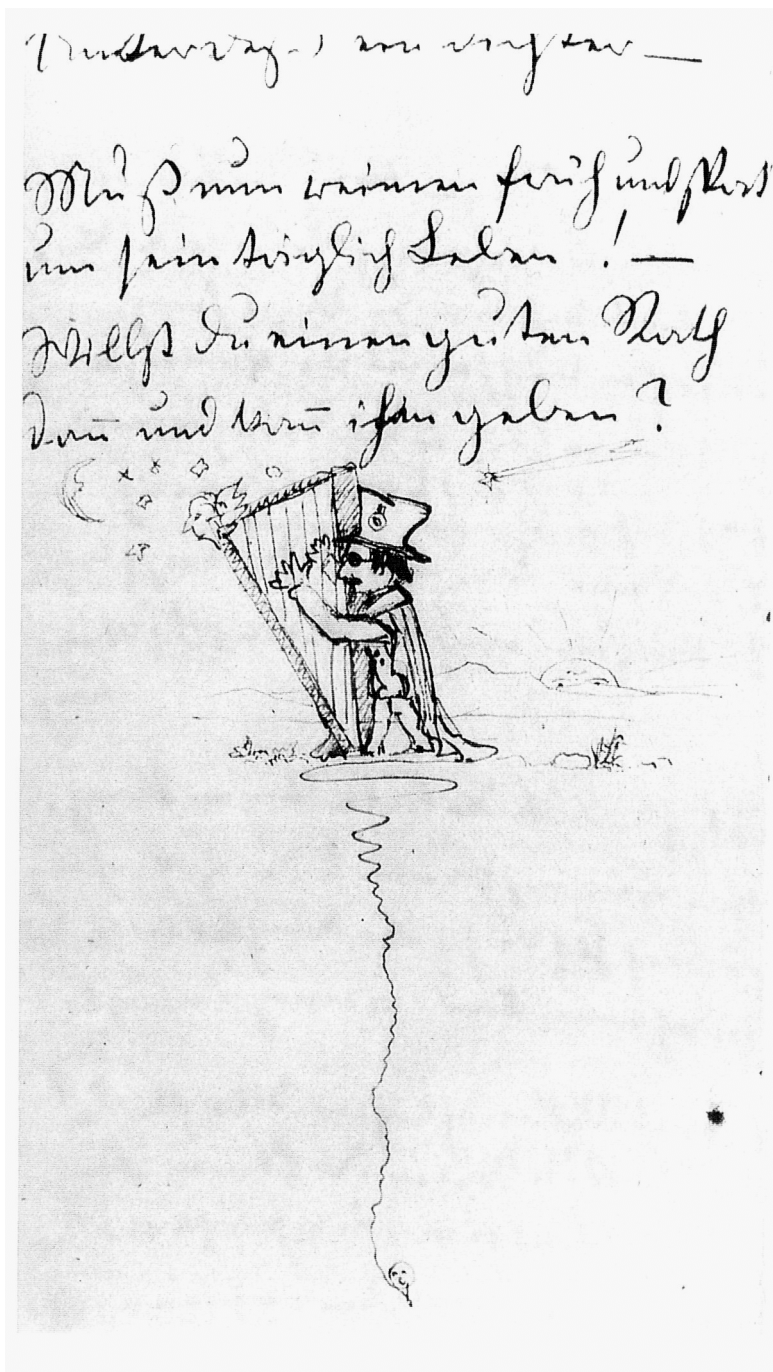 ein Dichter —
Muß nun reimen früh und spat
um sein täglich Leben! —
Willst du einen guten Rath
dan̄ und wan̄ ihm geben?